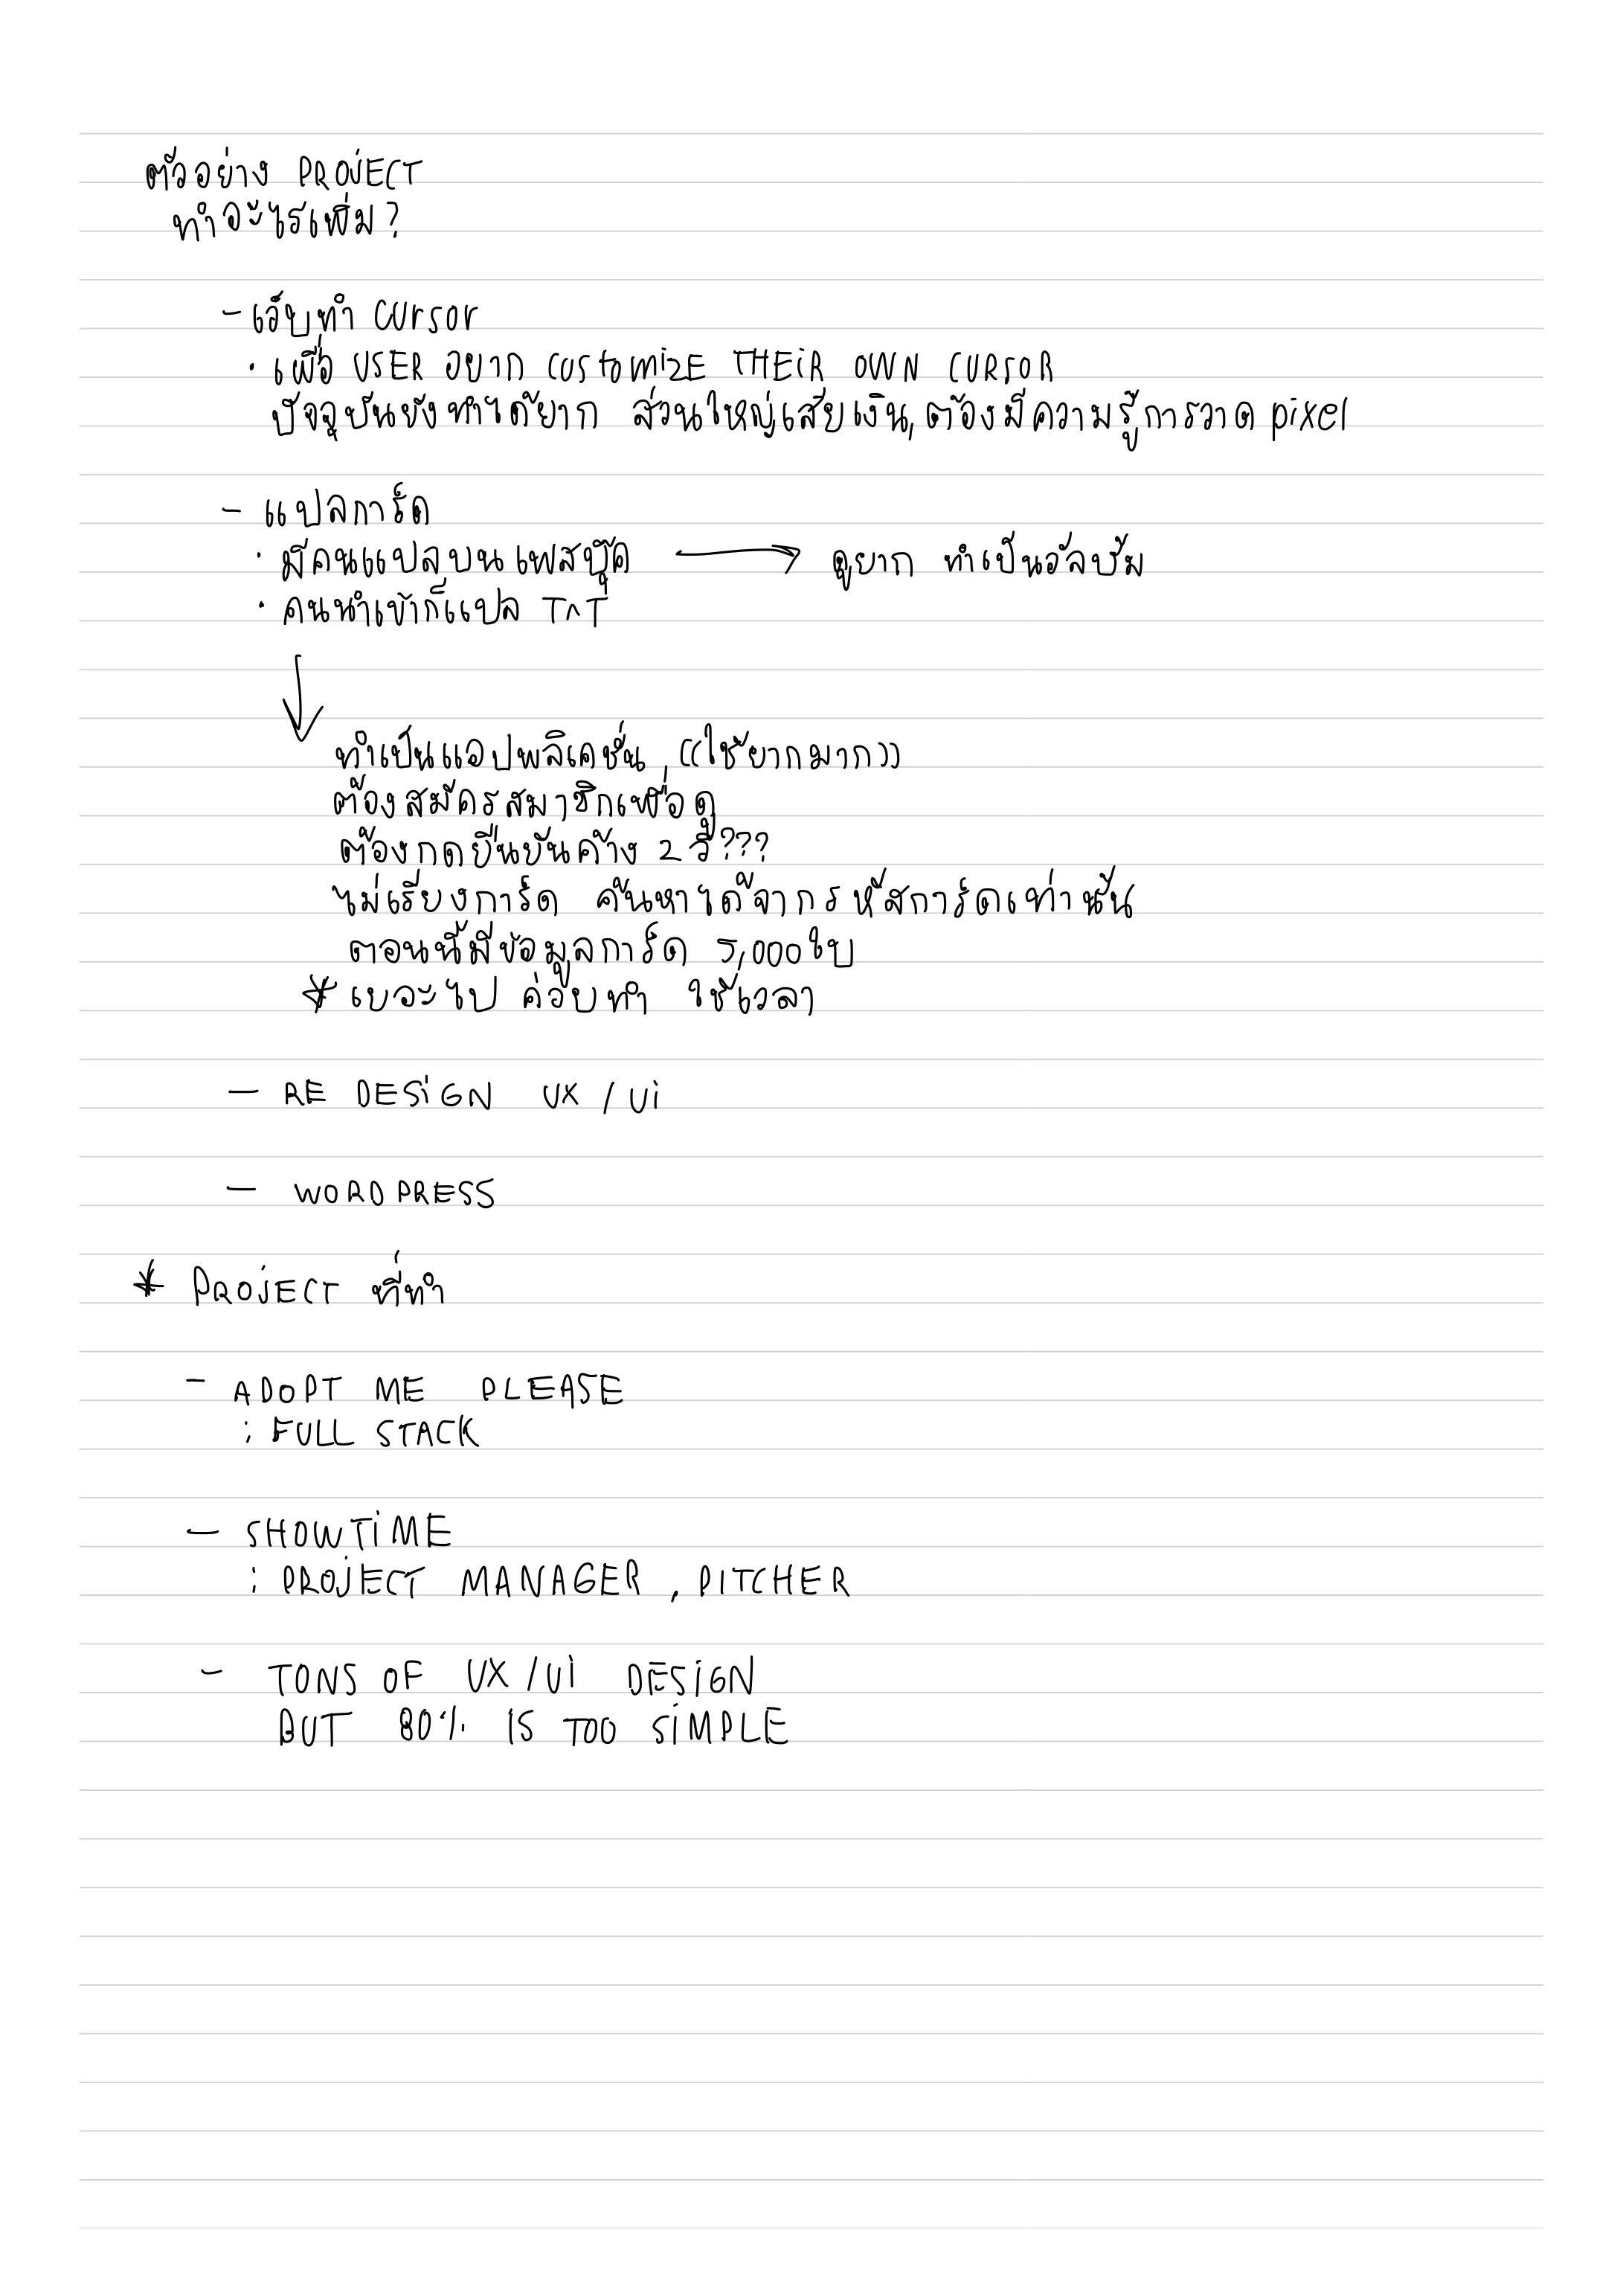 ตัวอย่าง PROJECT
ทำอะไรเพิ่ม?
- เว็บทำ cursor
· เผื่อ USER อยาก customize THEIR OWN CURSOR
ปัจจุบันยังทำได้ยาก ส่วนใหญ่เสียเงิน, ต้องมีความรู้การวาด pixel
- แปลการ์ด
· มีคนแปลบนเฟสบุ๊ค → ดูยาก ทำเป็นอัลบั้ม
· คนนำเข้าก็แปล TnT
↓
ทำเป็นแอปพลิเคชั่น ((ใช้ยากมาก))
ต้องสมัครสมาชิกเพื่อดู
ต้องกดยืนยันค้าง 2 วิ???
ไม่เรียงการ์ด ค้นหาได้จากรหัสการ์ดเท่านั้น
ตอนนี้มีข้อมูลการ์ด 5,000 ใบ
* เยอะไป ค่อยทำ ใช้เวลา
- RE DESIGN UX / UI
- WORDPRESS
* PROJECT ที่ทำ
- ADOPT ME PLEASE
: FULL STACK
- SHOWTIME
: PROJECT MANAGER , PITCHER
- TONS OF UX / UI DESIGN
BUT 80% IS TOO SIMPLE